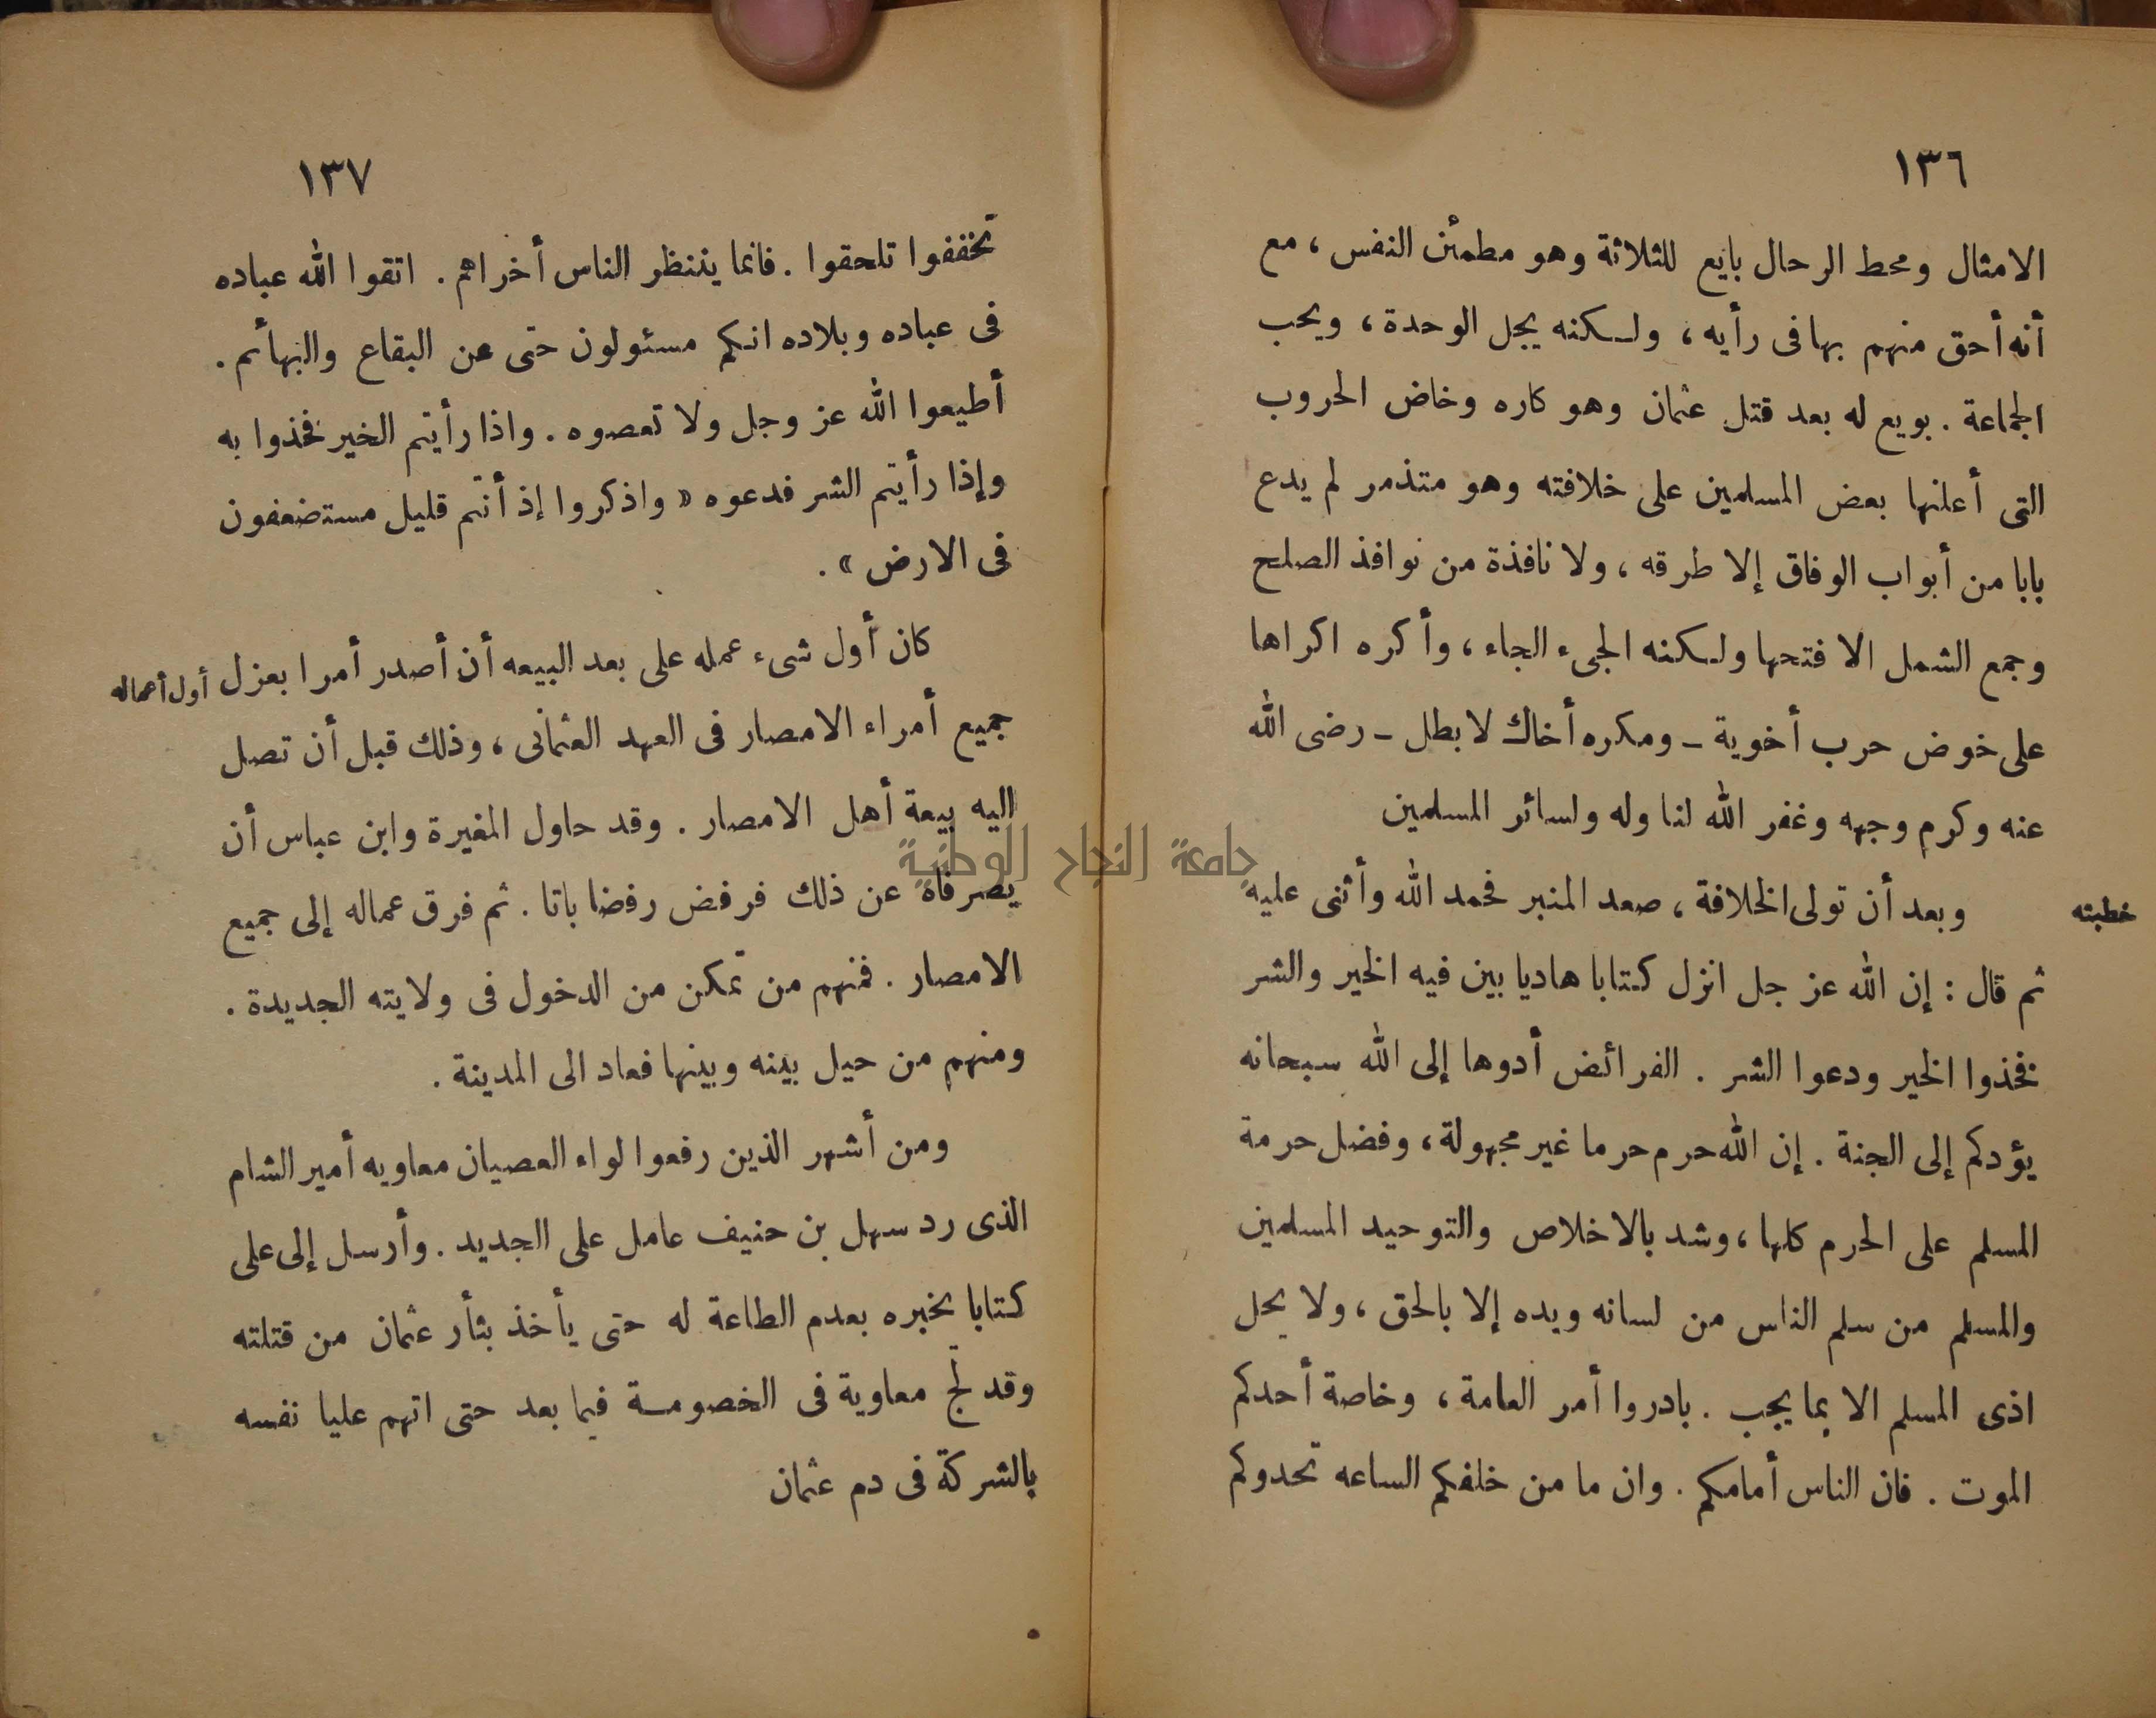 ١٣٦
الامثال ومحط الرحال بايع للثلاثة وهو مطمئن النفس، مع
أنه أحق منهم بها فى رأيه، ولكنه يجل الوحدة، ويحب
الجماعة. بويع له بعد قتل عثمان وهو كاره وخاض الحروب
التى أعلنها بعض المسلمين على خلافته وهو متذمر لم يدع
بابا من أبواب الوفاق إلا طرقه، ولا نافذة من نوافذ الصلح
وجمع الشمل الا فتحها ولكنه الجىء الجاء، وأكره اكراها
على خوض حرب أخوية - ومكره أخاك لا بطل - رضى الله
عنه وكرم وجهه وغفر الله لنا وله ولسائر المسلمين
خطبته
وبعد أن تولى الخلافة، صعد المنبر فحمد الله وأثنى عليه
ثم قال : إن الله عز جل انزل كتابا هاديا بين فيه الخير والشر
فخذوا الخير ودعوا الشر . الفرائض أدوها إلى الله سبحانه
يؤدكم إلى الجنة . إن الله حرم حرما غير مجهولة، وفضل حرمة
المسلم على الحرم كلها، وشد بالاخلاص والتوحيد المسلمين
والمسلم من سلم الناس من لسانه ويده إلا بالحق، ولا يحل
اذى المسلم الا بما يجب . بادروا أمر العامة، وخاصة أحدكم
الموت . فان الناس أمامكم . وان ما من خلفكم الساعه تحدوكم
١٣٧
تخففوا تلحقوا . فانما ينتظر الناس أخراهم . اتقوا الله عباده
فى عباده وبلاده انكم مسئولون حتى عن البقاع والبهائم .
أطيعوا الله عز وجل ولا تعصوه . واذا رأيتم الخير فخذوا به
وإذا رأيتم الشر فدعوه « واذكروا إذ أنتم قليل مستضعفون
فى الارض » .
كان أول شىء عمله على بعد البيعه أن أصدر أمرا بعزل
أول أعماله
جميع أمراء الامصار فى العهد العثمانى، وذلك قبل أن تصل
اليه بيعة أهل الامصار . وقد حاول المغيرة وابن عباس أن
يصرفاه عن ذلك فرفض رفضا باتا . ثم فرق عماله إلى جميع
الامصار . فمنهم من تمكن من الدخول فى ولايته الجديدة .
ومنهم من حيل بينه وبينها فعاد الى المدينة .
ومن أشهر الذين رفعوا لواء العصيان معاويه أمير الشام
الذى رد سهل بن حنيف عامل على الجديد . وأرسل إلى على
كتابا يخبره بعدم الطاعة له حتى يأخذ بثأر عثمان من قتلته
وقد لج معاوية فى الخصومة فيما بعد حتى اتهم عليا نفسه
بالشركة فى دم عثمان
جامعة النجاح الوطنية